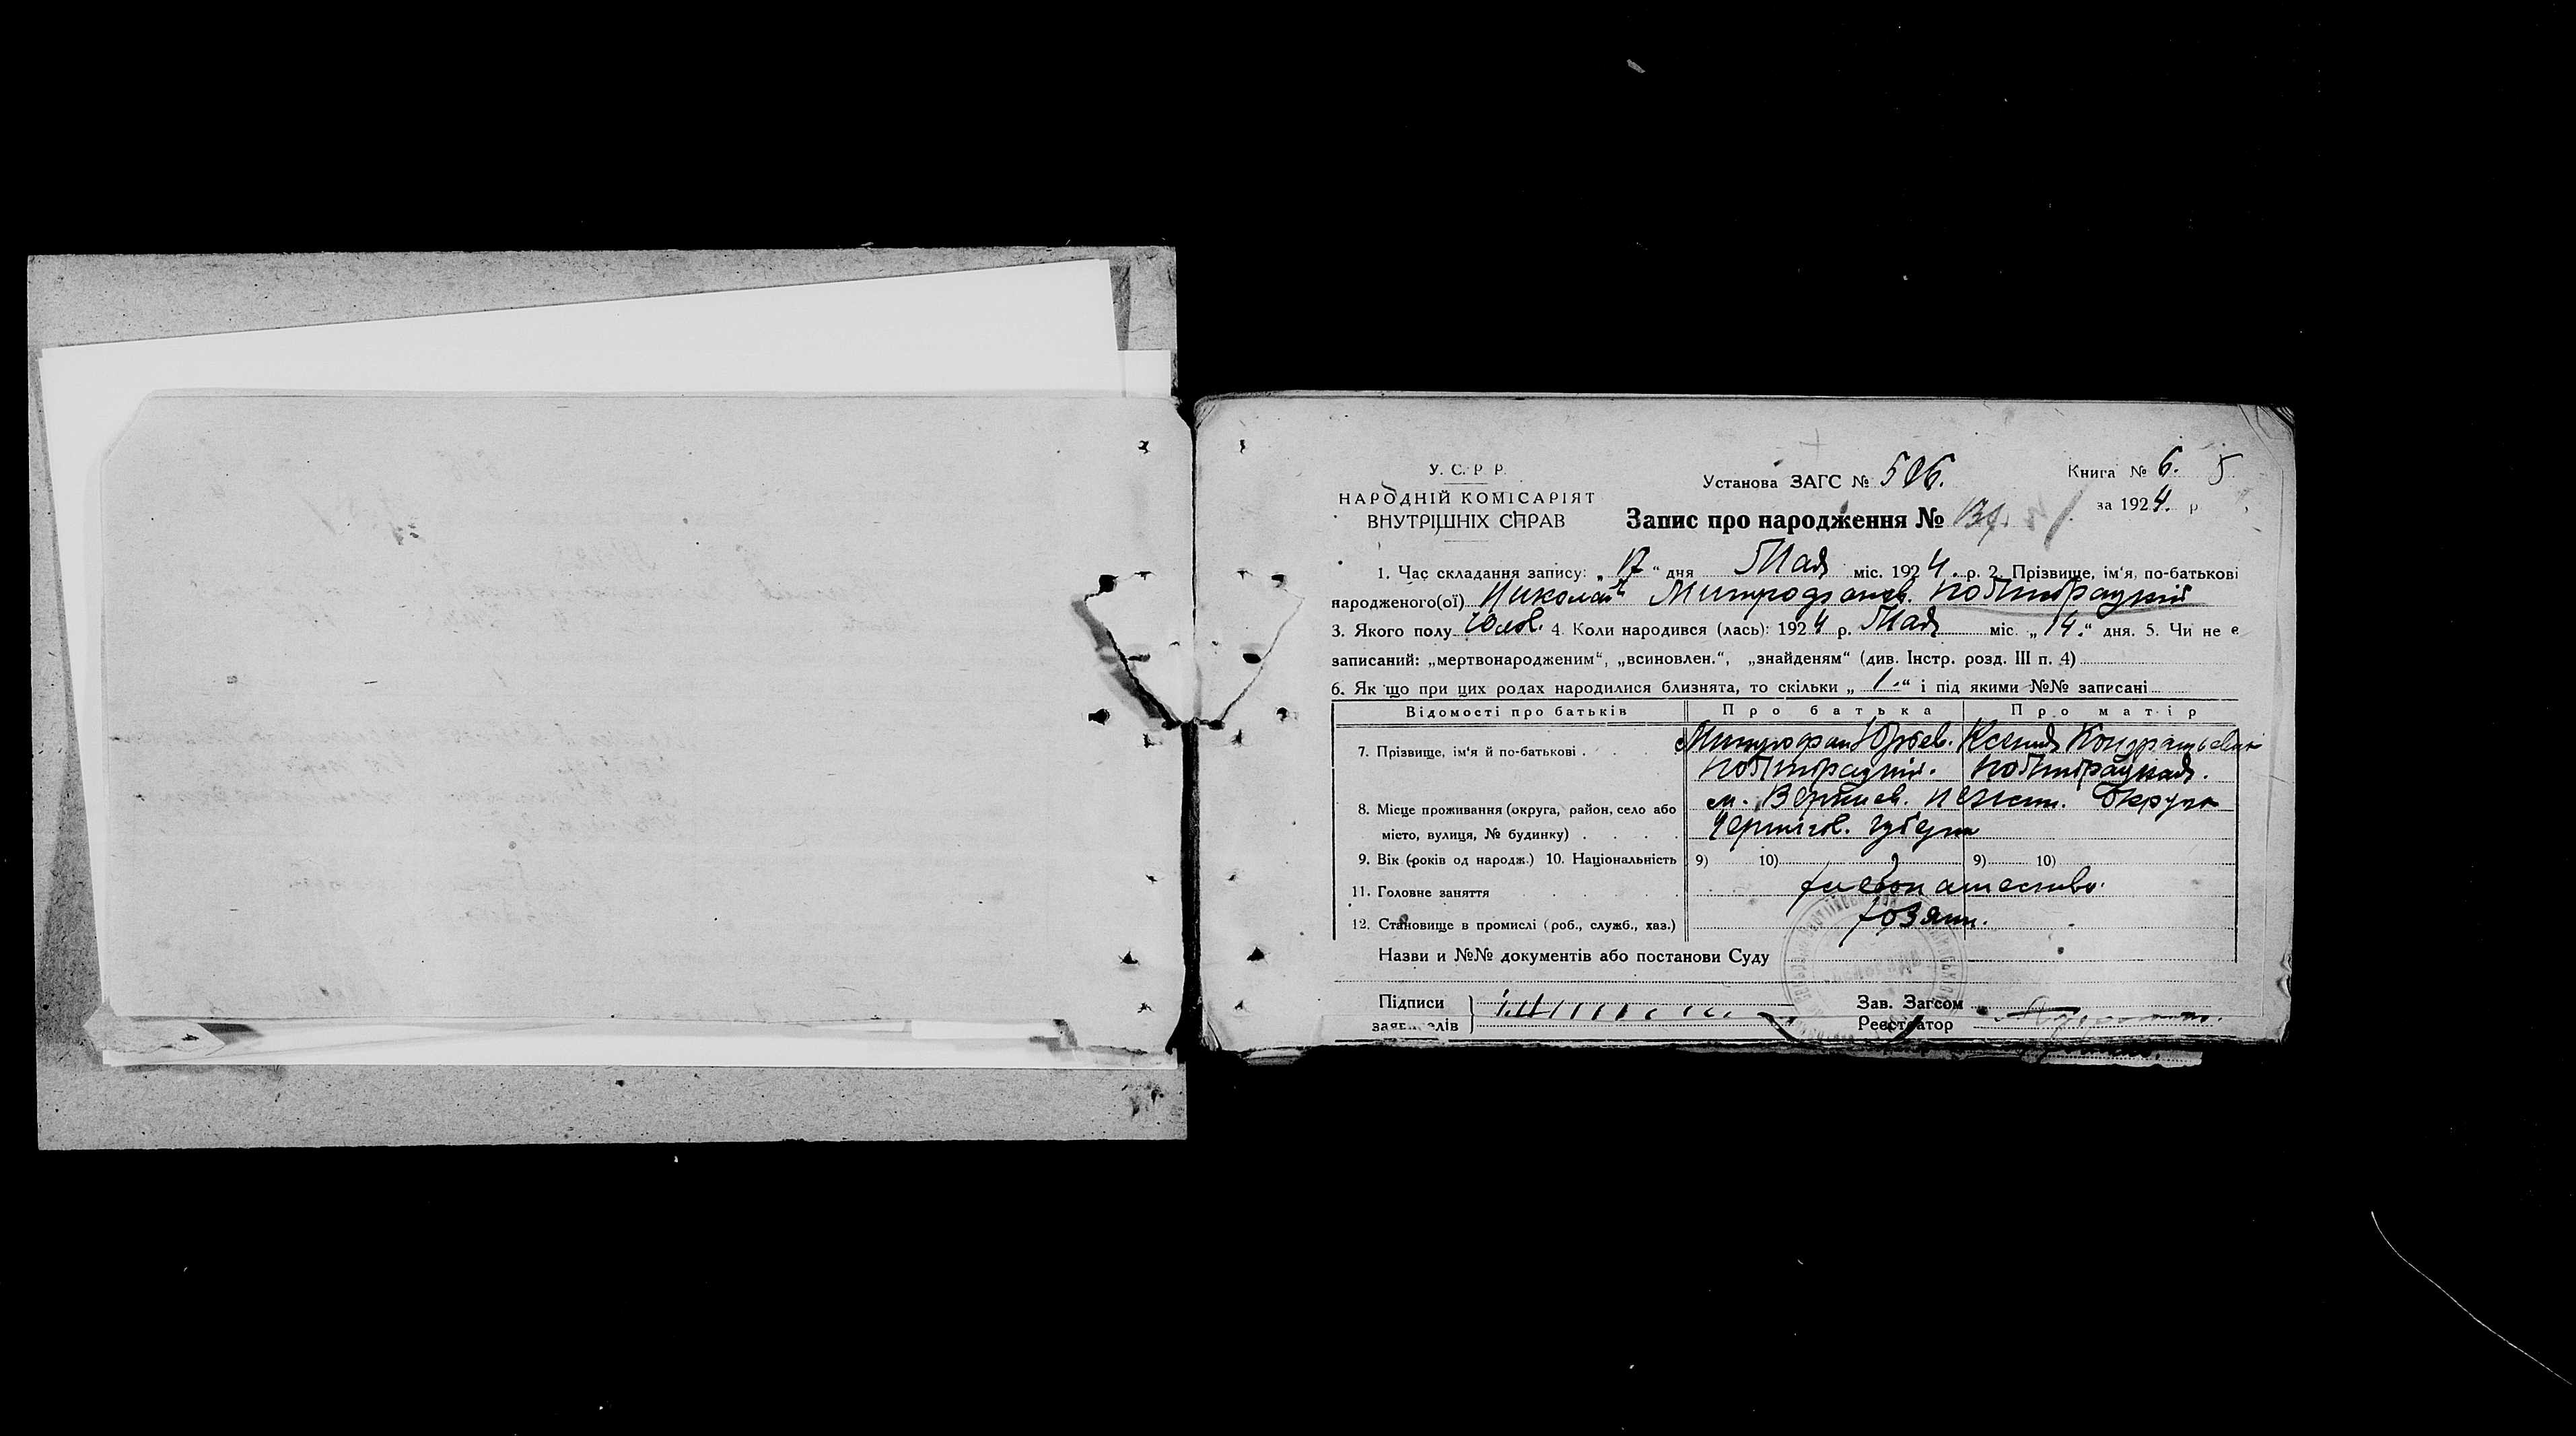 У. С. Р. Р.
НАРОДНІЙ КОМІСАРІЯТ
ВНУТРІШНІХ СПРАВ
Установа ЗАГС № 506.
Книга № 6. 5
за 1924. р
Запис про народження №
1. Час складання запису: „17“ дня Мая міс. 1924 р. 2. Прізвище, ім‘я, по-батькові
народженого(ої) Николай Митрофанов.
3. Якого полу Чолов. 4. Коли народився (лась): 1924 р. Мая міс. „14.“ дня. 5. Чи не є
записаний: „мертвонародженим“, „всиновлен.“, „знайденям“ (див. Інстр. розд. III п. 4)
6. Як що при цих родах народилися близнята, то скільки „1.“ і під якими №№ записані
Відомості про батьків Про батька Про матір
7. Прізвище, ім‘я й по-батькові Митрофан Юрьев. Ксения Кондратьевна
8. Місце проживання (округа, район, село або м. Вертиев. Нежин. Округа
місто, вулиця, № будинку) Чернигов. губерн
9. Вік (років од народж.) 10. Національність 9) 10) 9) 10)
11. Головне заняття хлебопашество.
12. Становище в промислі (роб., служб., хаз.) хозяин.
Назви и №№ документів або постанови Суду
Підписи
Зав. Загсом
Реєстратор